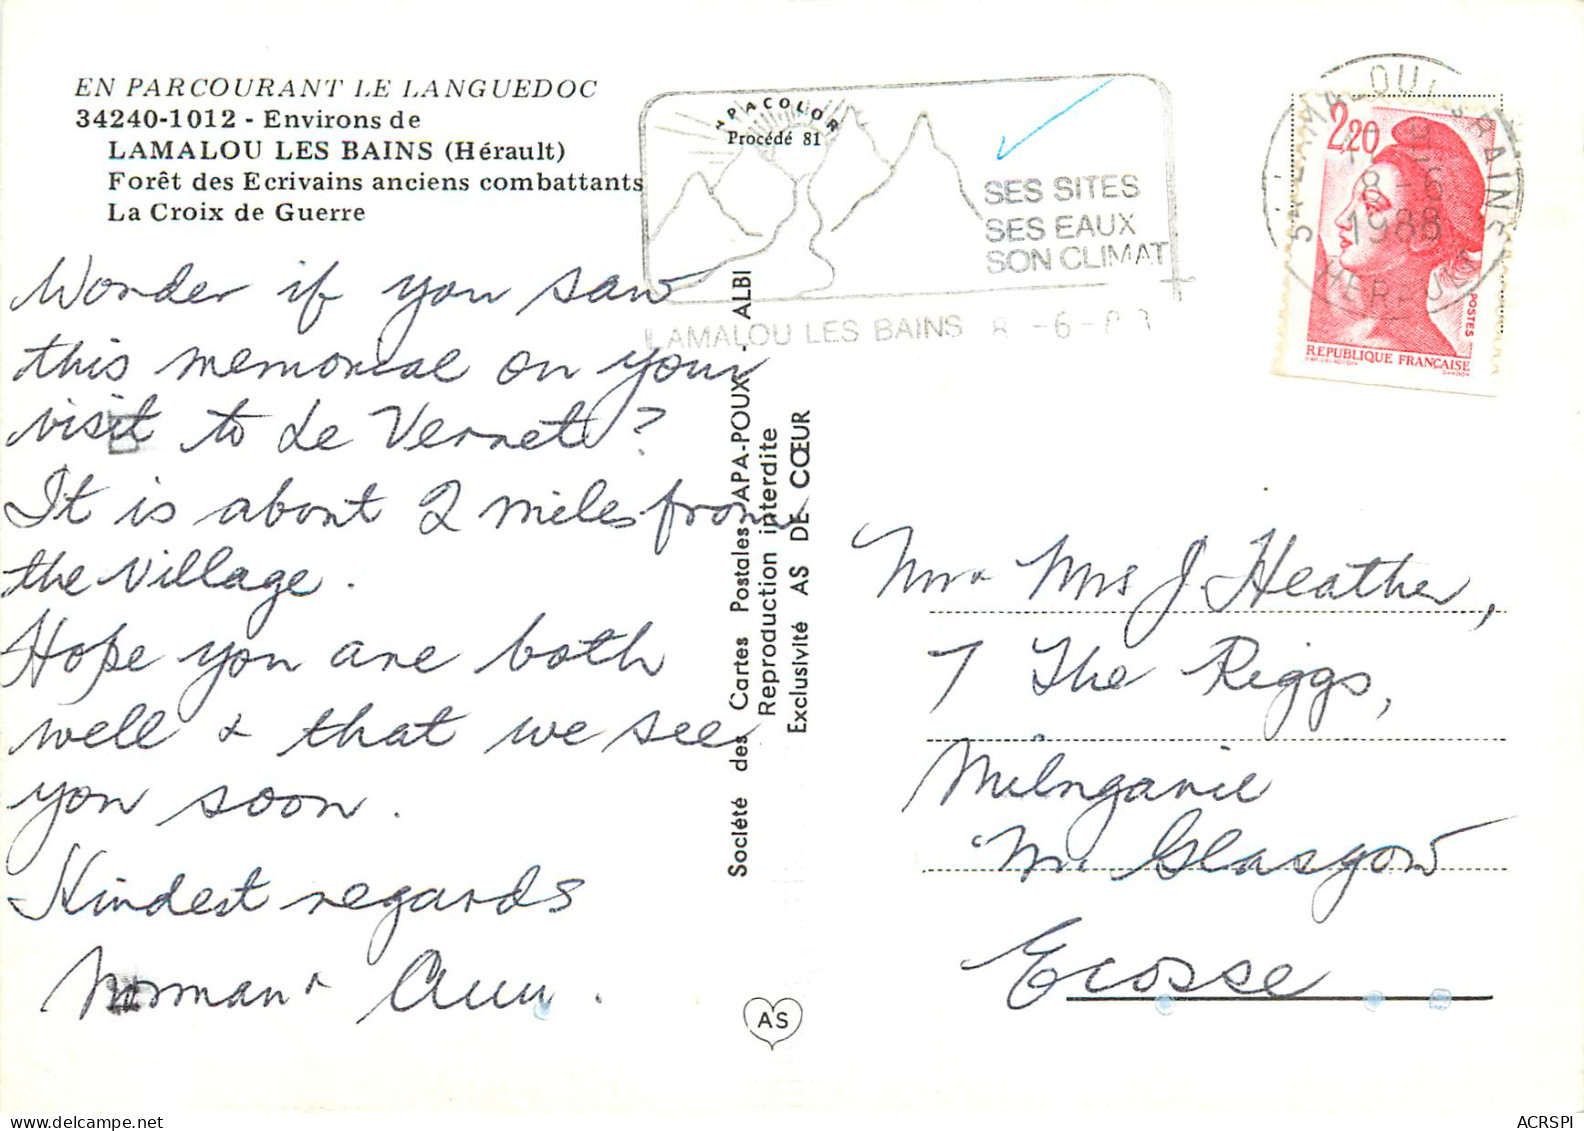 EN PARCOURANT LE LANGUEDOC
34240-1012 - Environs de
LAMALOU LES BAINS (Hérault)
Forêt des Ecrivains anciens combattants
La Croix de Guerre
Wonder if you saw
this memorial on your
visit to Le Vernet?
It is about 2 miles from
the village.
Hope you are both
well & that we see
you soon.
Kindest regards
Norman & Ann.
APACOLOR
Procédé 81
SES SITES
SES EAUX
SON CLIMAT
LAMALOU LES BAINS 8-6-88
Société des Cartes Postales APA-POUX - ALBI
Reproduction interdite
Exclusivité AS DE CŒUR
AS
34 LAMALOU LES BAINS
8-6
1988
HERAULT
2,20
POSTES
REPUBLIQUE FRANÇAISE
GANDON
Mr & Mrs J. Heather,
7 The Riggs,
Milngavie
Nr. Glasgow
Ecosse
ACRSPI